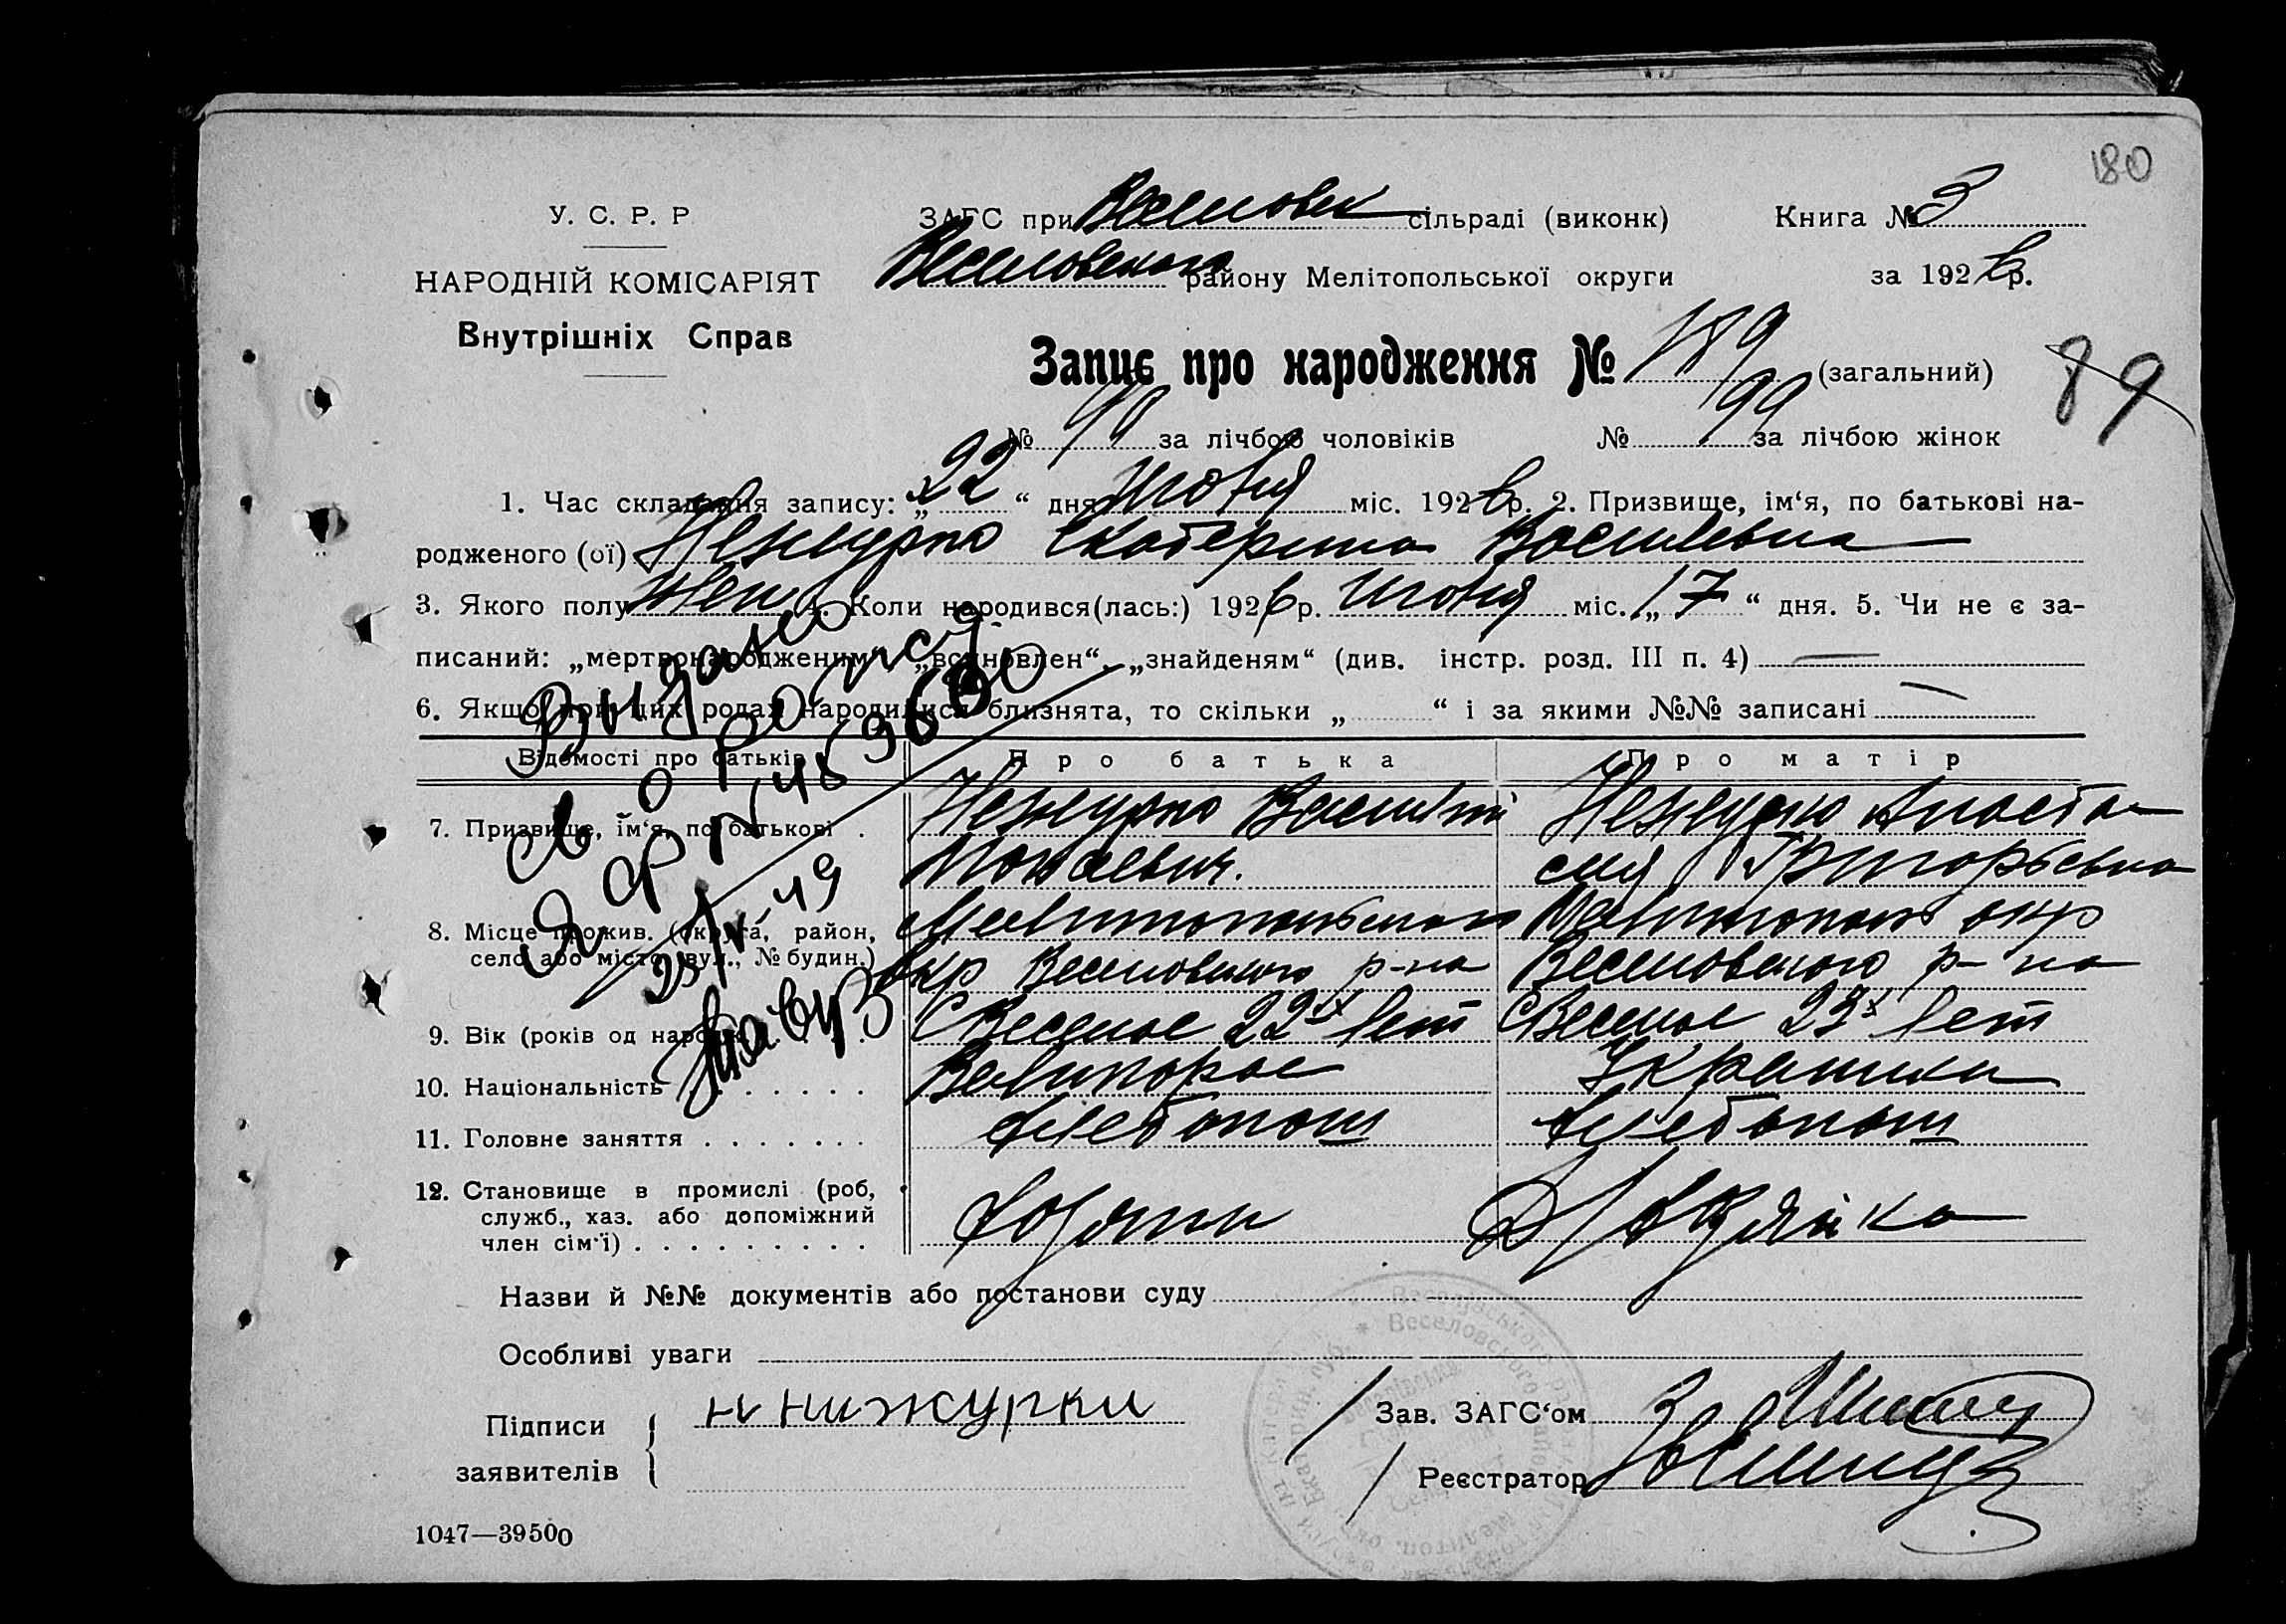 180
У. С. Р. Р
ЗАГС при Веселовск сільраді (виконк) Книга № 3
НАРОДНІЙ КОМІСАРІЯТ Веселовского району Мелітопольської округи за 1926 р.
Внутрішніх Справ
Запис про народження № 189 (загальний)
89
№ 90 за лічбою чоловіків № 99 за лічбою жінок
1. Час складання запису: „22“ дня Июня міс. 1926 р. 2. Призвище, ім‘я, по батькові на-
родженого (ої) Нежурко Екатерина Василевна
3. Якого полу жен 4. Коли народився(лась:) 1926 р. Июня міс. „17“ дня. 5. Чи не є за-
писаний: „мертвонародженим“ „всиновлен“, „знайденям“ (див. інстр. розд. III п. 4)
6. Якщо при цих родах народилися близнята, то скільки „ “ і за якими №№ записані
Выдано
Відомості про батьків Про батька Про матір
7. Призвище, ім‘я, по батькові . Нежурко Василий Нежурко Анаста-
сия Григорьевна
8. Місце прожив. (округа, район, Мелитопольского Мелитополь окр
село або місто, вул., № будин.) окр Веселовского р-на Веселовского р-на
9. Вік (років од народж. С Веселое 22х лет С Веселое 23х лет
10. Національність . . . . . . Великорос Украинка
11. Головне заняття . . . . . . . Хлебопаш Хлебопаш
12. Становище в промислі (роб,
служб., хаз. або допоміжний Хозяин
член сім‘ї) . . . . . . . . .
Назви й №№ документів або постанови суду
Особливі уваги
Підписи н нижурки Зав. ЗАГС‘ом
заявителів Реєстратор
1047—39500